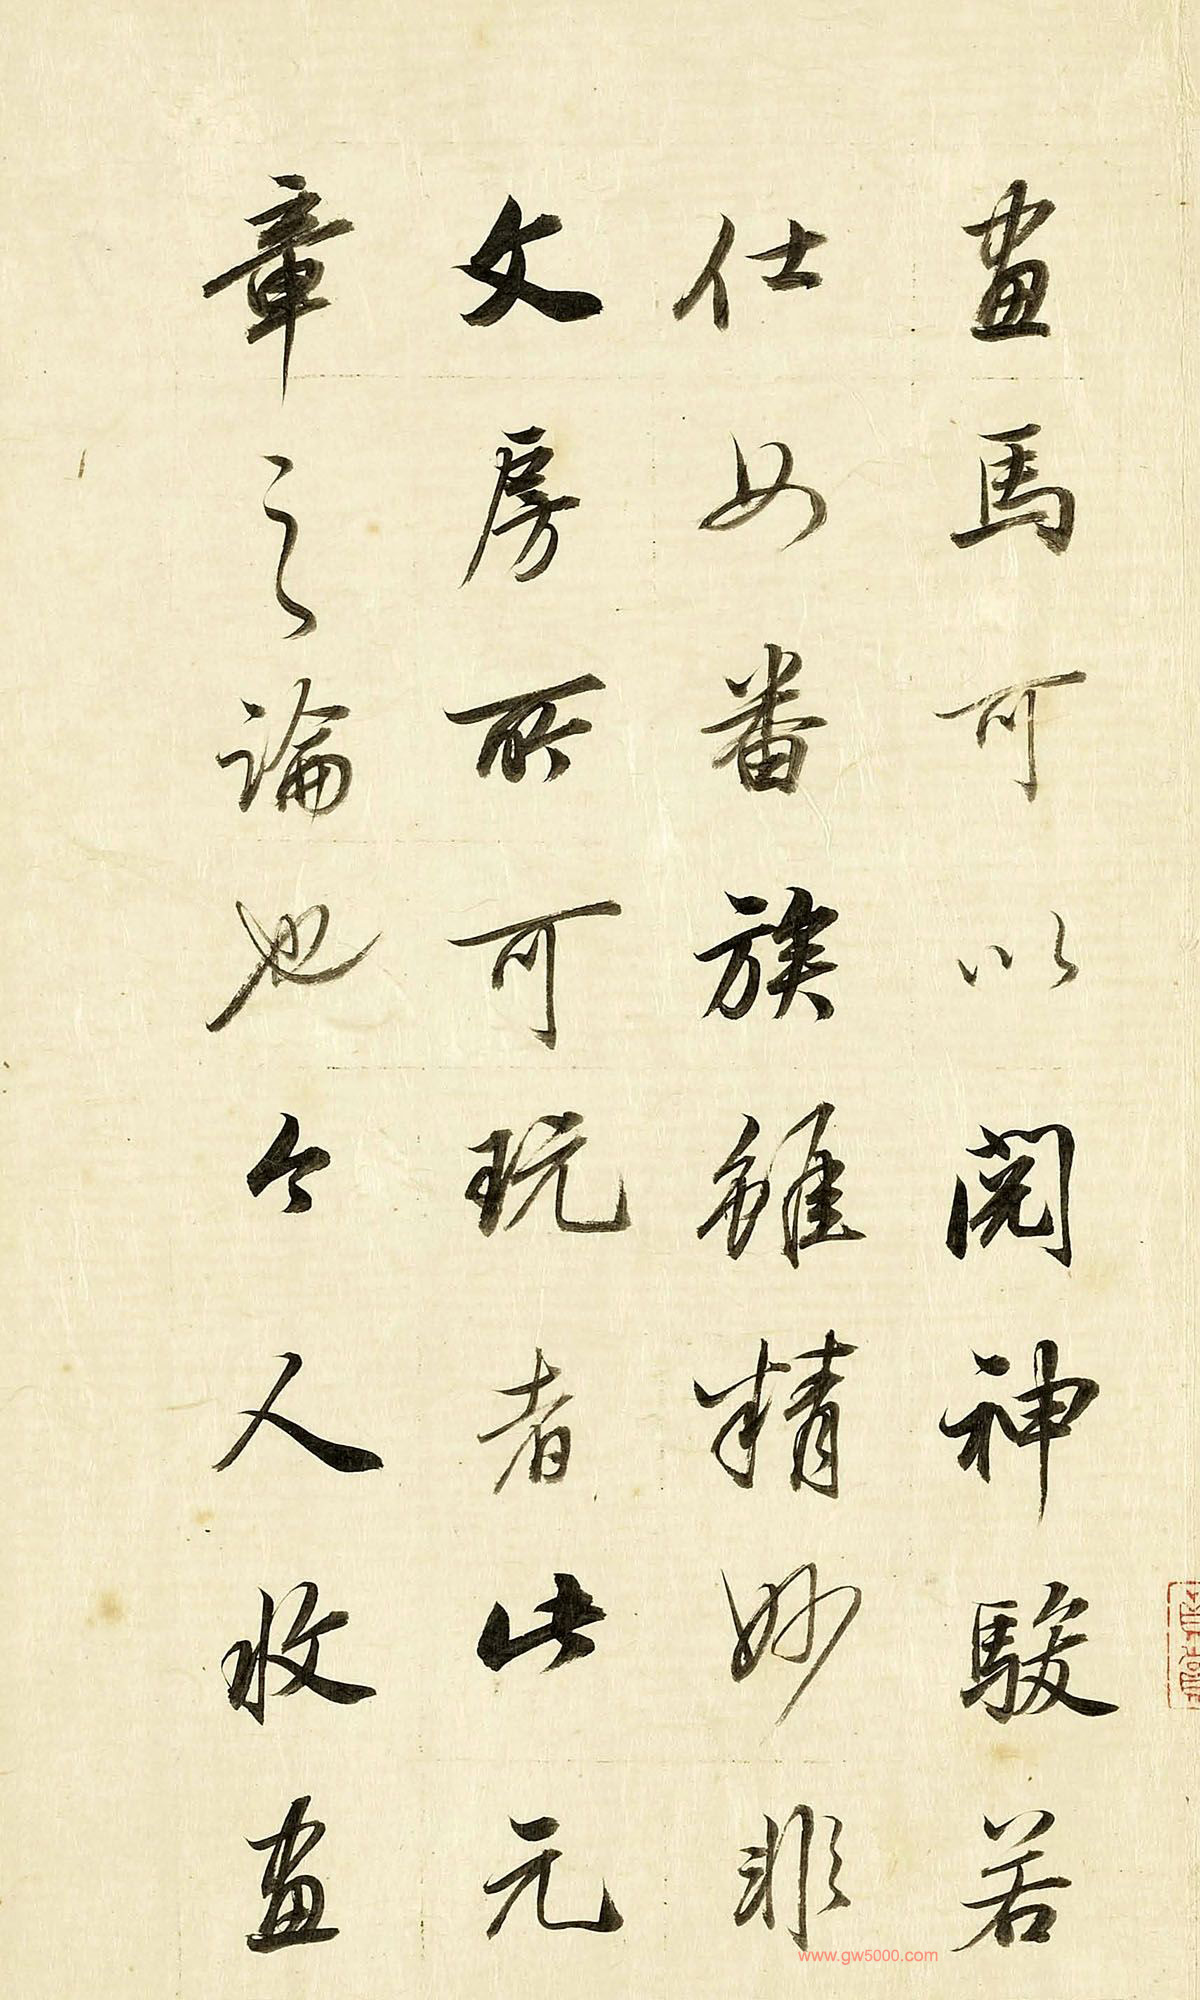 畫馬可以閱神駿若
仕女番族雖精妙非
文房所可玩者此元
章之論也今人收畫
www.gw5000.com